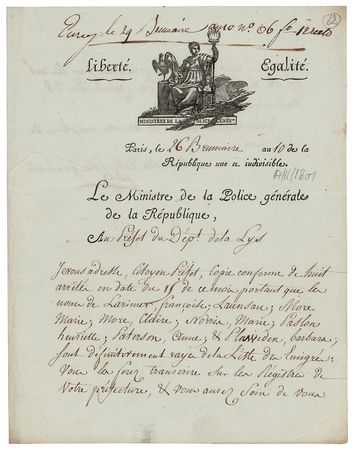 le 29 Brumaire
12
Liberté. Egalité.
MINISTÈRE DE LA POLICE GÉNÉR.le
Paris, le 26 Brumaire an 10 de la
République une et indivisible.
Le Ministre de la Police générale
de la République,
Au Préfet du Dépt. de la Lys
Je vous adresse, Citoyen Préfet, Copie conforme de huit
arrêtés en date du 15 de ce mois portant que les
noms de Larimer françoise, Launsau; More
Marie; More Claire; Norris, Marie; Paston
henriette; Paterson, Anne; & barbara;
sont définitivement rayés de la Liste des Emigrés.
Vous les ferez transcrire sur les Registres de
Votre préfecture, & vous aurez Soin de vous